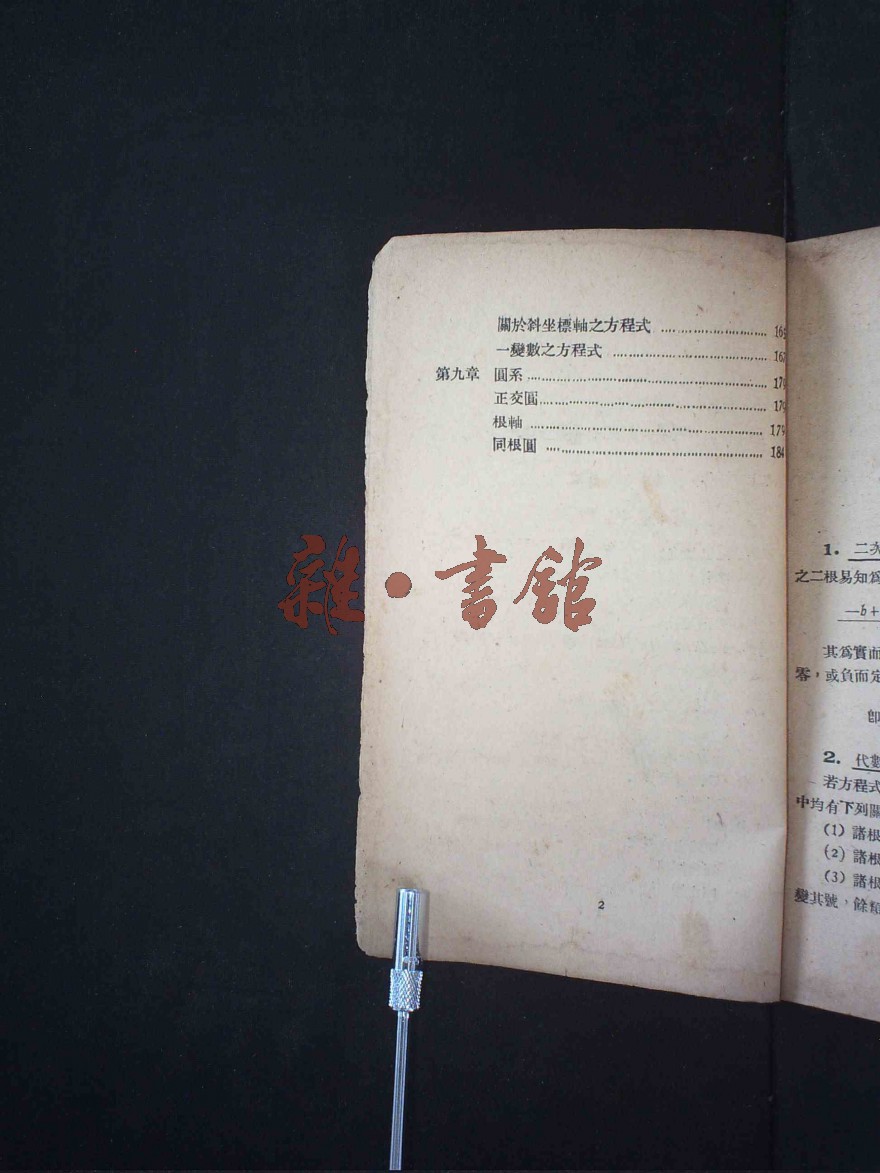 關於斜坐標軸之方程式
一變數之方程式
第九章 圓系
正交圓
根軸 179
同根圓 184
2
雜·書館
1. 二次
之二根易知爲
—b+
其爲實而
零，或負而定
卽
2. 代數
若方程式
中均有下列關
(1) 諸根
(2) 諸根
(3) 諸根
變其號，餘類